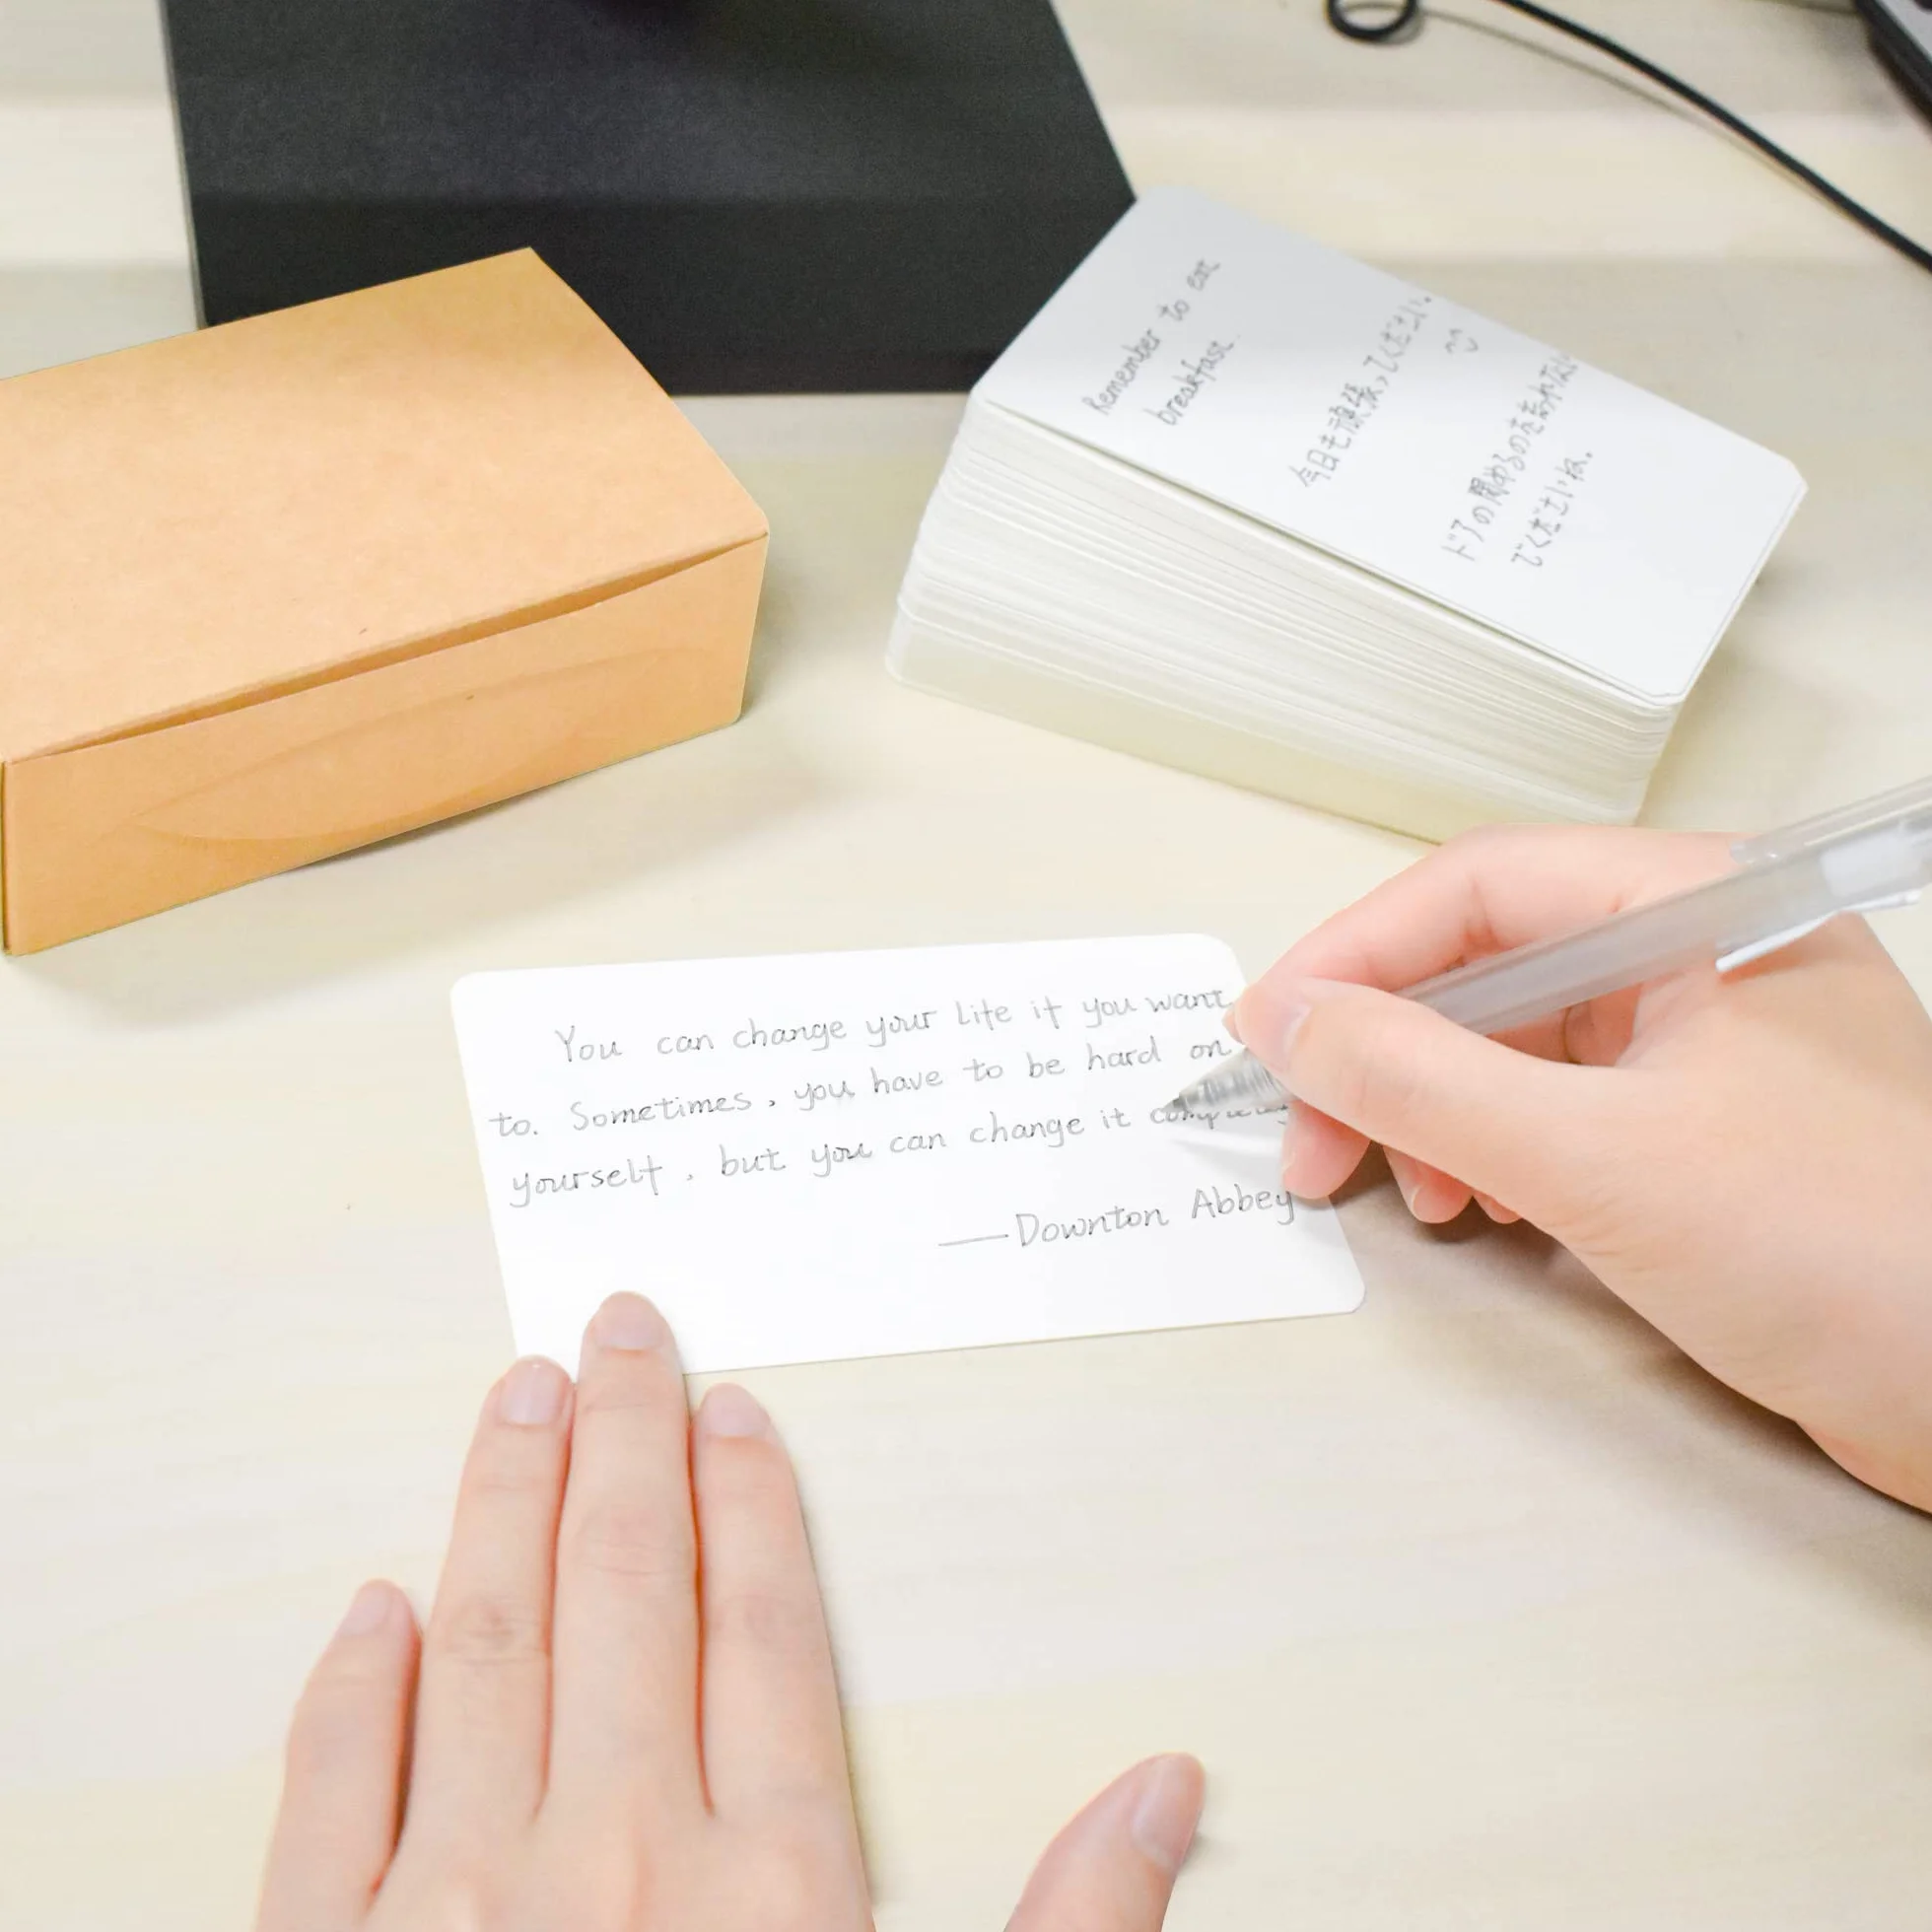 You can change your life if you want
to. Sometimes, you have to be hard on
yourself, but you can change it completely
——Downton Abbey
Remember to eat
breakfast.
今日も頑張ってください。
ドアの閉めるのを忘れない
でくださいね。